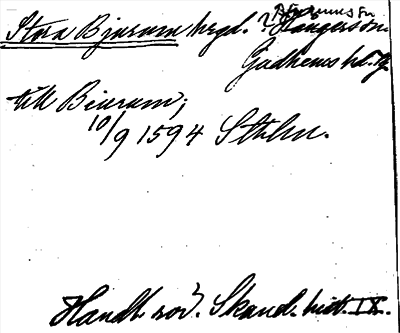 Stora Bjurum hrgd. ? Hångersön.
Gudhems hd. Vg.
till Biurum,
10/9 1594 Sthlm.
Handl. rör. Skand. hist. IX.